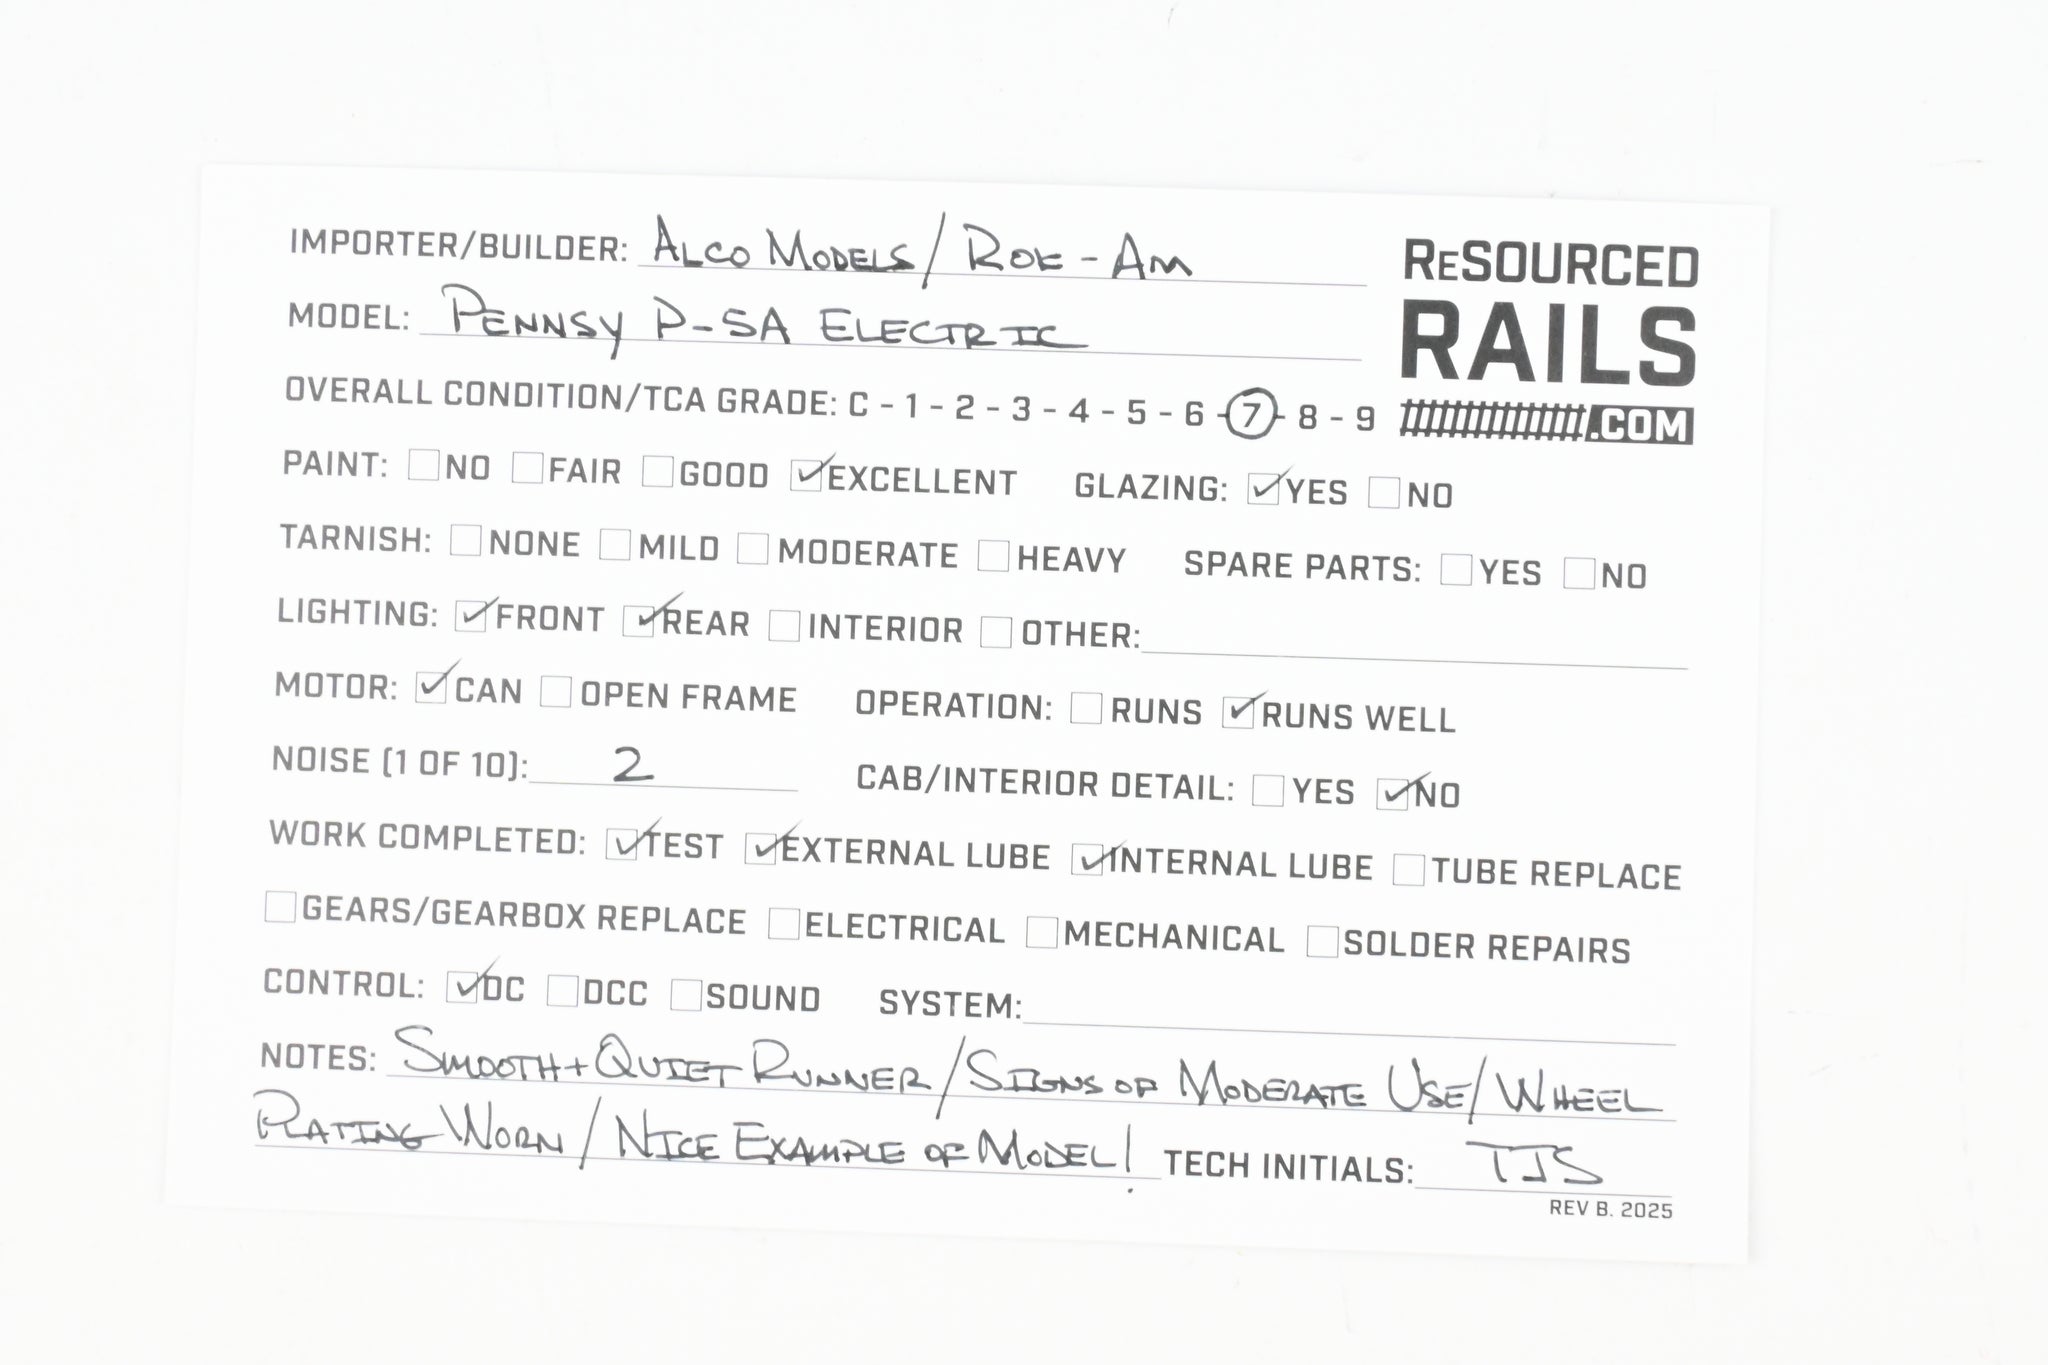 IMPORTER/BUILDER: ALCO MODELS/ROK-AM
RESOURCED
RAILS
.COM
MODEL: PENNSY P-5A ELECTRIC
OVERALL CONDITION/TCA GRADE: C - 1 - 2 - 3 - 4 - 5 - 6 - 7 - 8 - 9
PAINT: ☐NO ☐FAIR ☐GOOD ☑EXCELLENT GLAZING: ☑YES ☐NO
TARNISH: ☐NONE ☐MILD ☐MODERATE ☐HEAVY SPARE PARTS: ☐YES ☐NO
LIGHTING: ☑FRONT ☑REAR ☐INTERIOR ☐OTHER:
MOTOR: ☑CAN ☐OPEN FRAME OPERATION: ☐RUNS ☑RUNS WELL
NOISE (1 OF 10): 2 CAB/INTERIOR DETAIL: ☐YES ☑NO
WORK COMPLETED: ☑TEST ☑EXTERNAL LUBE ☑INTERNAL LUBE ☐TUBE REPLACE
☐GEARS/GEARBOX REPLACE ☐ELECTRICAL ☐MECHANICAL ☐SOLDER REPAIRS
CONTROL: ☑DC ☐DCC ☐SOUND SYSTEM:
NOTES: SMOOTH+QUIET RUNNER/SIGNS OF MODERATE USE/WHEEL
PLATING WORN/NICE EXAMPLE OF MODEL! TECH INITIALS: TJS
REV B. 2025